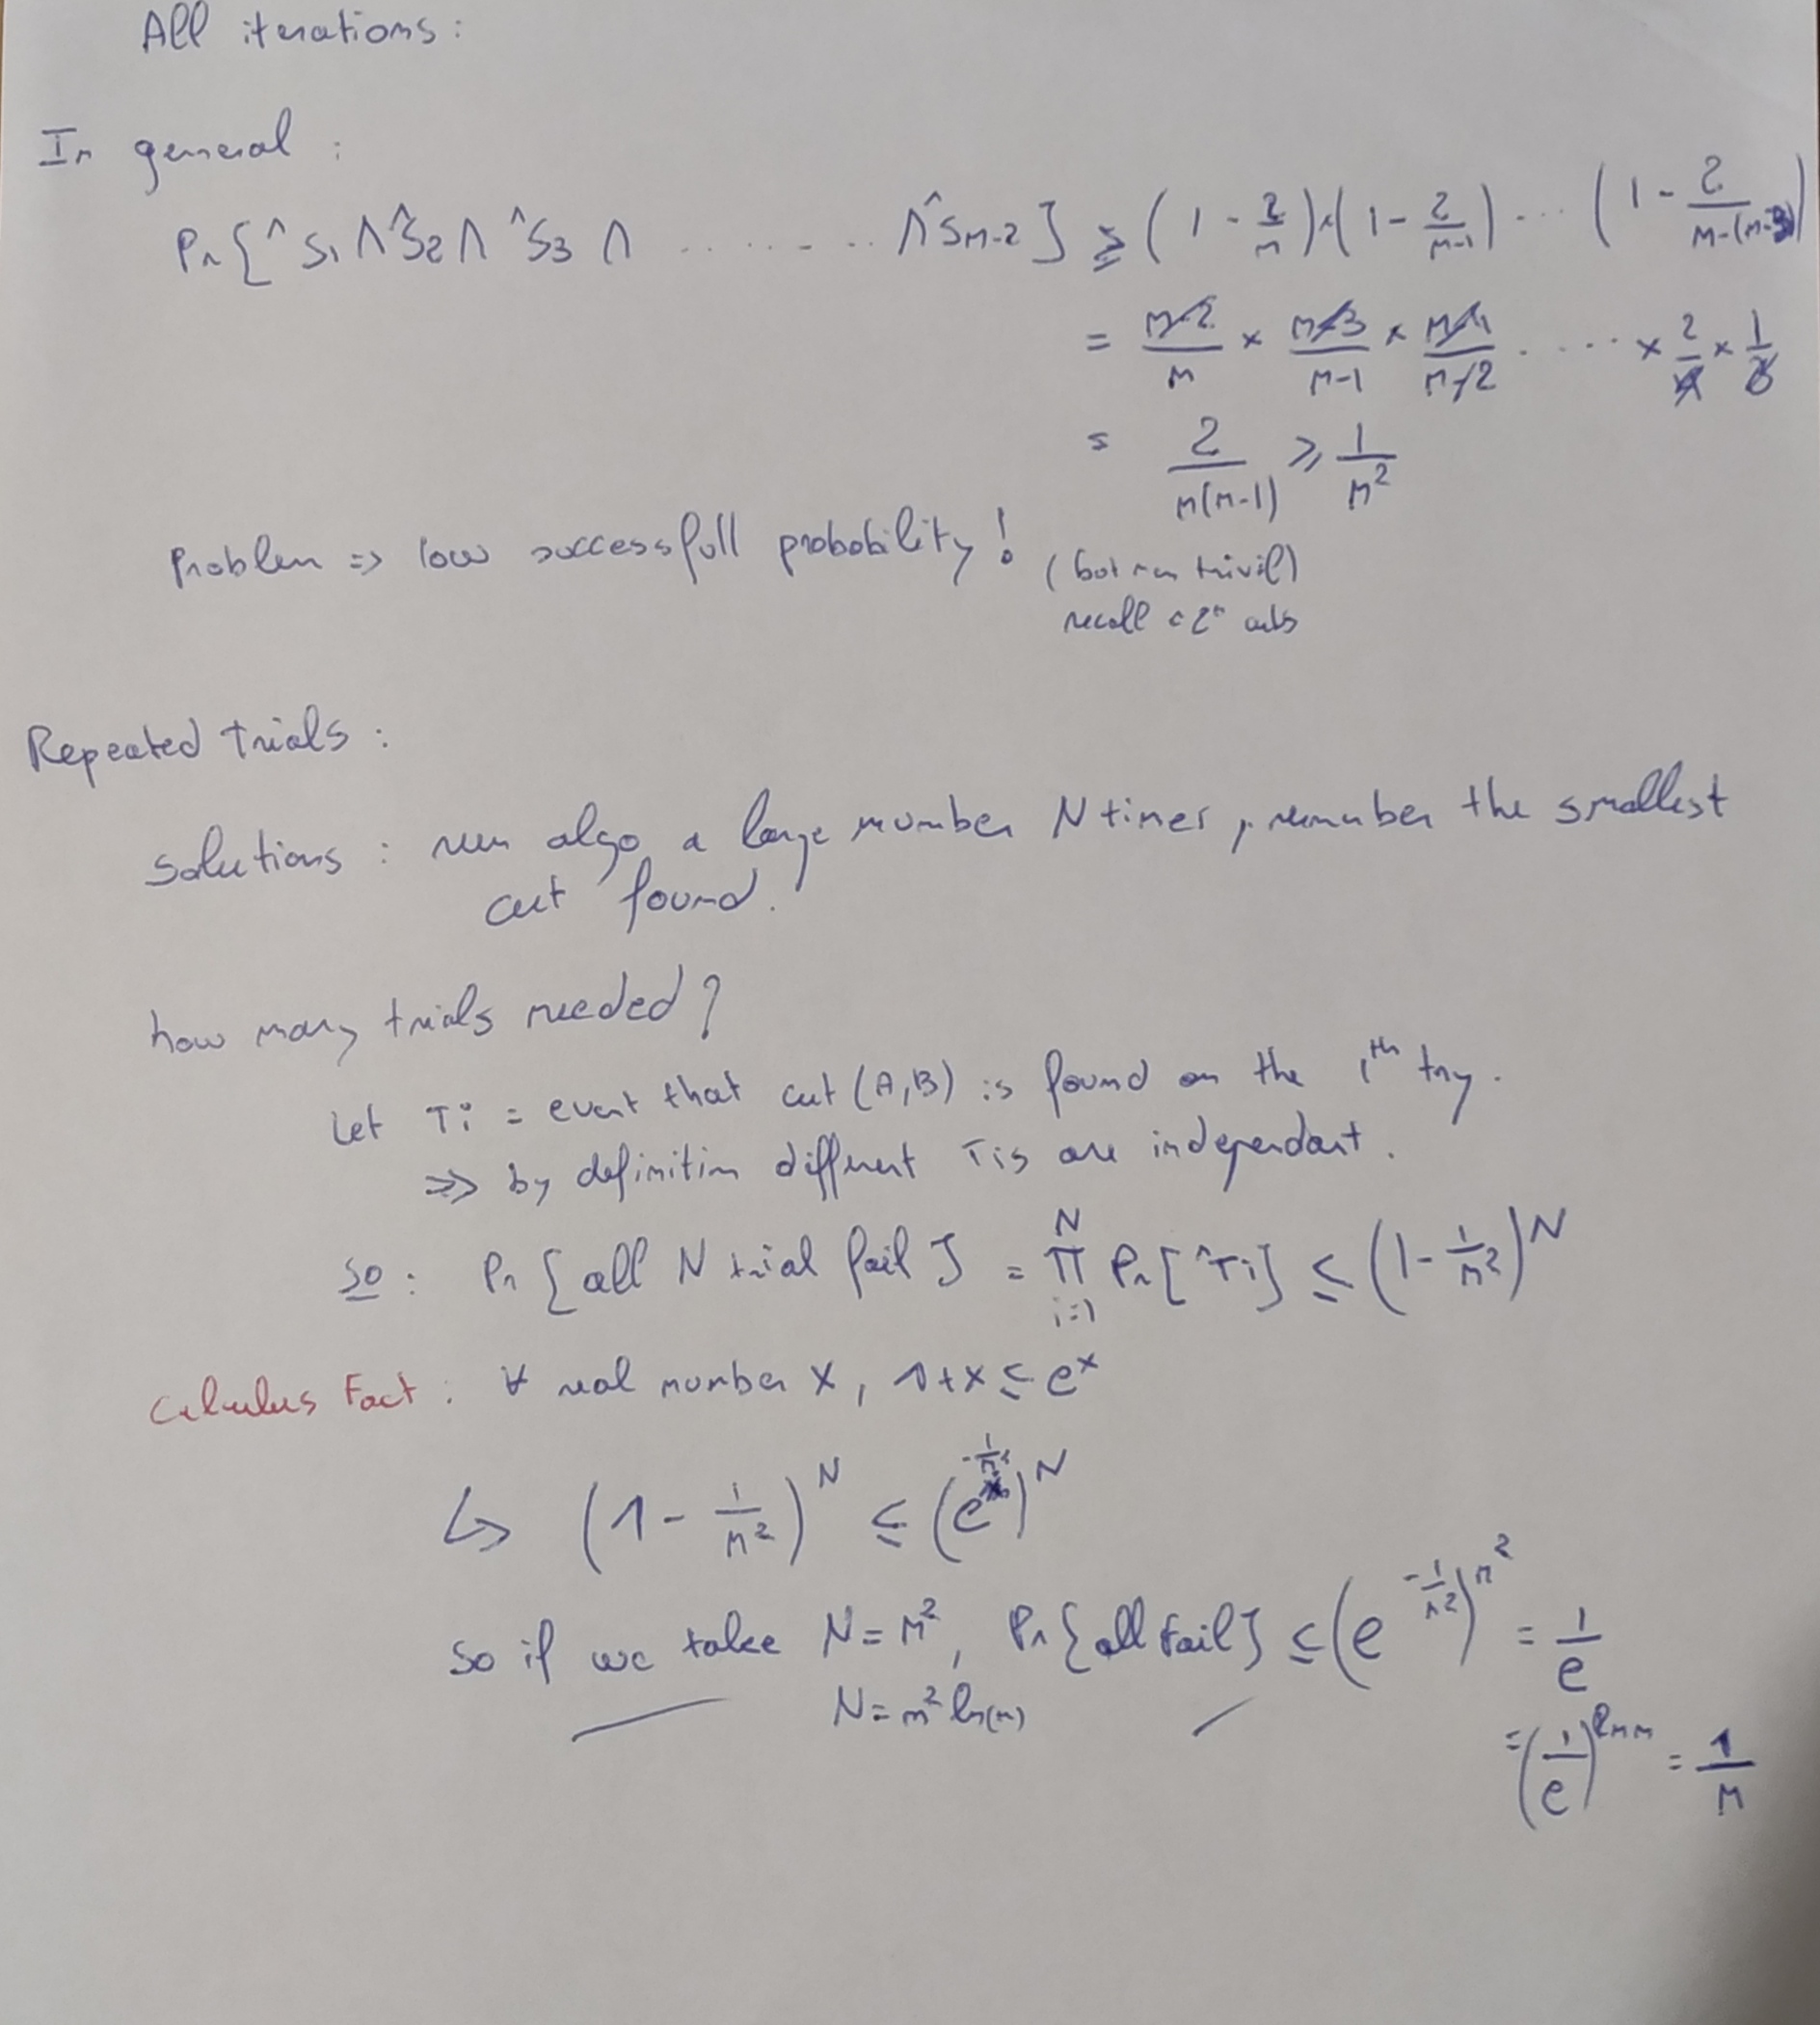 All iterations :
In general :
Pr [ ^S1 ∧ ^S2 ∧ ^S3 ∧ ........ ∧ ^Sn-2 ] ≥ (1 - 2/n) · (1 - 2/n-1) ... (1 - 2/n-(n-3))
= n-2/n × n-3/n-1 × n-4/n-2 ..... × 2/4 × 1/3
= 2/n(n-1) ≥ 1/n²
Problem => low successfull probability ! (but non trivil)
recall 2ⁿ cuts
Repeated trials :
Solutions : run algo a large number N times, remember the smallest
cut found.
how many trials needed ?
Let Ti = event that cut (A,B) is found on the iᵗʰ try.
=> by definition different Tis are independant.
so : Pr [ all N trial fail ] = ∏ᴺᵢ₌₁ Pr [ ^Ti ] ≤ (1 - 1/n²)ᴺ
Calculus Fact : ∀ real number x, 1+x ≤ eˣ
↳ (1 - 1/n²)ᴺ ≤ (e^(-1/n²))ᴺ
So if we take N = n², Pr [ all fail ] ≤ (e^(-1/n²))^n² = 1/e
N = n² ln(n)
= (1/e)^ln n = 1/n